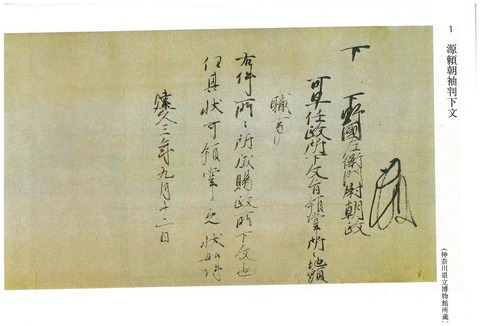 1 源頼朝袖判下文
(神奈川県立博物館所蔵)
下 下野國左衛門尉朝政
可早任政所下文旨領掌所々地頭
職事
右件所々所成賜政所下文也
任其状可領掌之状如件
建久三年九月十二日